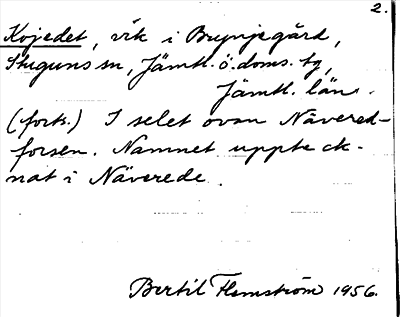 2.
Kojedet, vik i Brynjegård,
Stuguns sn, Jämtl. ö. doms. tg,
Jämtl. län.
(forts.) I selet ovan Nävered-
forsen. Namnet uppteck-
nat i Näverede.
Bertil Flemström 1956.